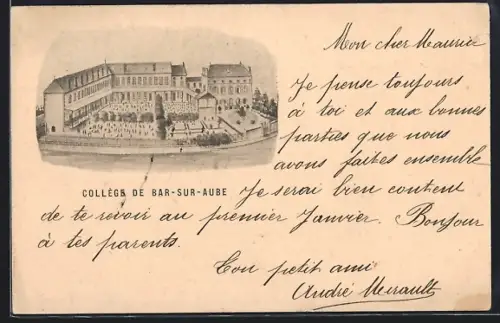 Mon cher Maurice
Je pense toujours
à toi et aux bonnes
parties que nous
avons faites ensemble
COLLÈGE DE BAR-SUR-AUBE
Je serai bien content
de te revoir au premier Janvier. Bonjour
à tes parents.
Ton petit ami
André